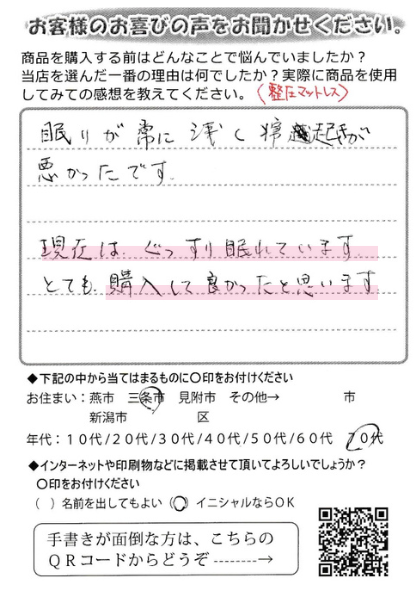 お客様のお喜びの声をお聞かせください。
商品を購入する前はどんなことで悩んでいましたか?
当店を選んだ一番の理由は何でしたか?実際に商品を使用
してみての感想を教えてください。(整圧マットレス)
眠りが常に浅く 起きが
悪かったです.
現在は、ぐっすり眠れています.
とても購入して良かったと思います
◆下記の中から当てはまるものに〇印をお付けください
お住まい:燕市 三条市 見附市 その他→ 市
新潟市 区
年代:10代/20代/30代/40代/50代/60代 70代
◆インターネットや印刷物などに掲載させて頂いてよろしいでしょうか?
〇印をお付けください
( )名前を出してもよい (〇)イニシャルならOK
手書きが面倒な方は、こちらの
QRコードからどうぞ -------→